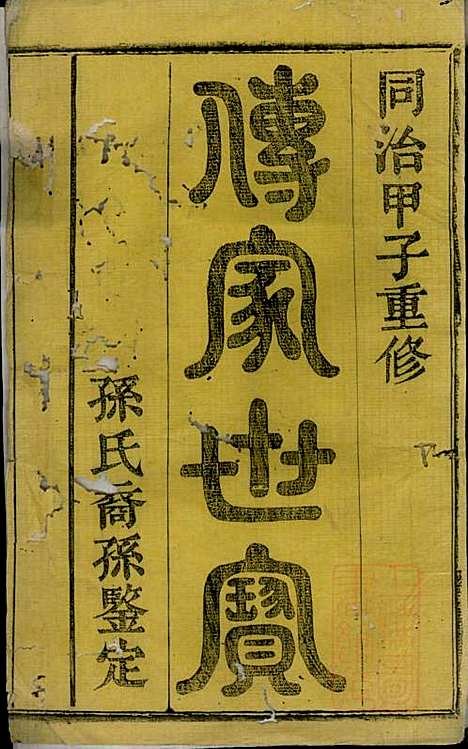 同治甲子重修
傳家世寶
孫氏裔孫鑒定